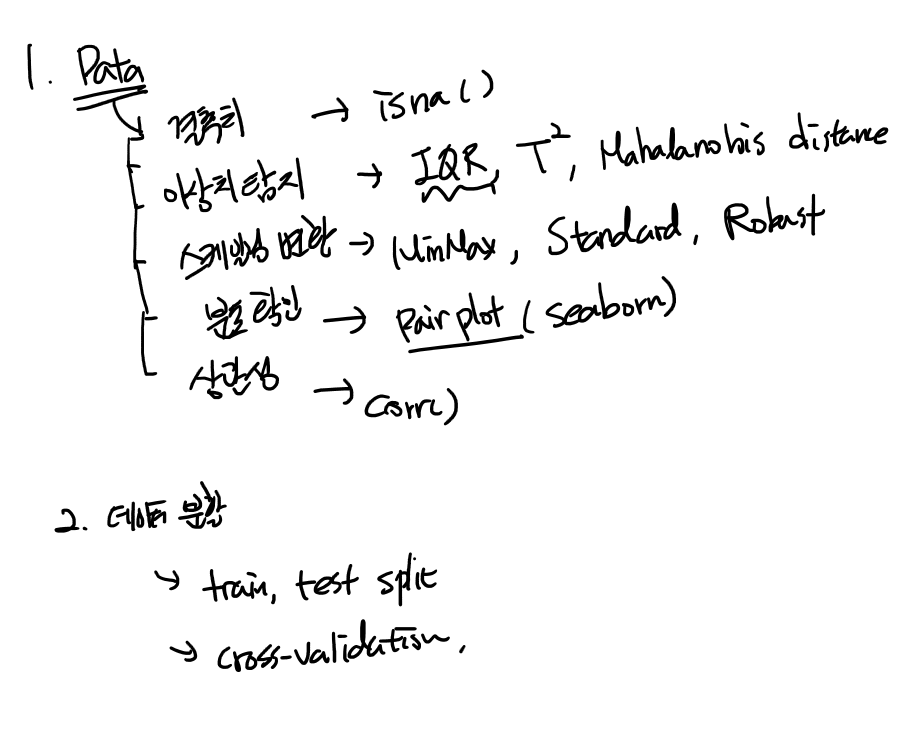 1. Data
결측치 → isna()
이상치 탐지 → IQR, T², Mahalanobis distance
스케일링 변환 → MinMax, Standard, Robust
분포 확인 → pair plot (seaborn)
상관성 → corr()
2. 데이터 분할
↳ train, test split
↳ cross-validation,